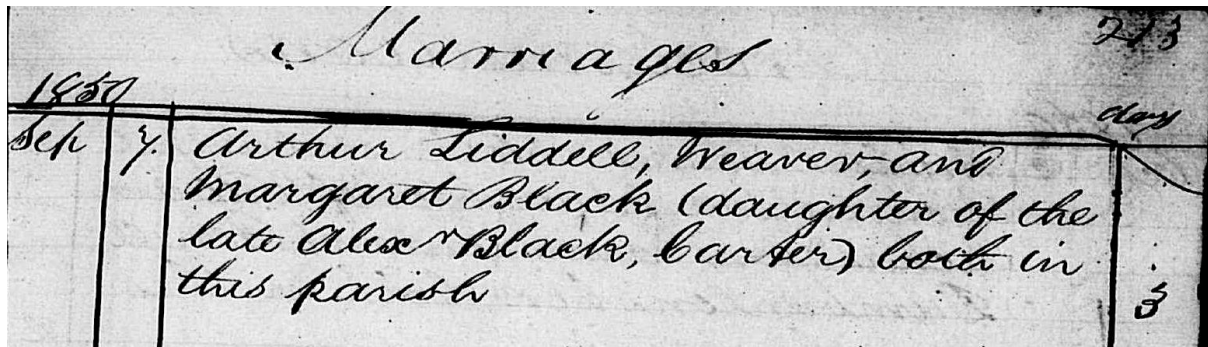 Marriages 213
1850
days
Sep 7. Arthur Liddell, Weaver, and
Margaret Black (daughter of the
late Alexr Black, Carter) both in
this parish 3